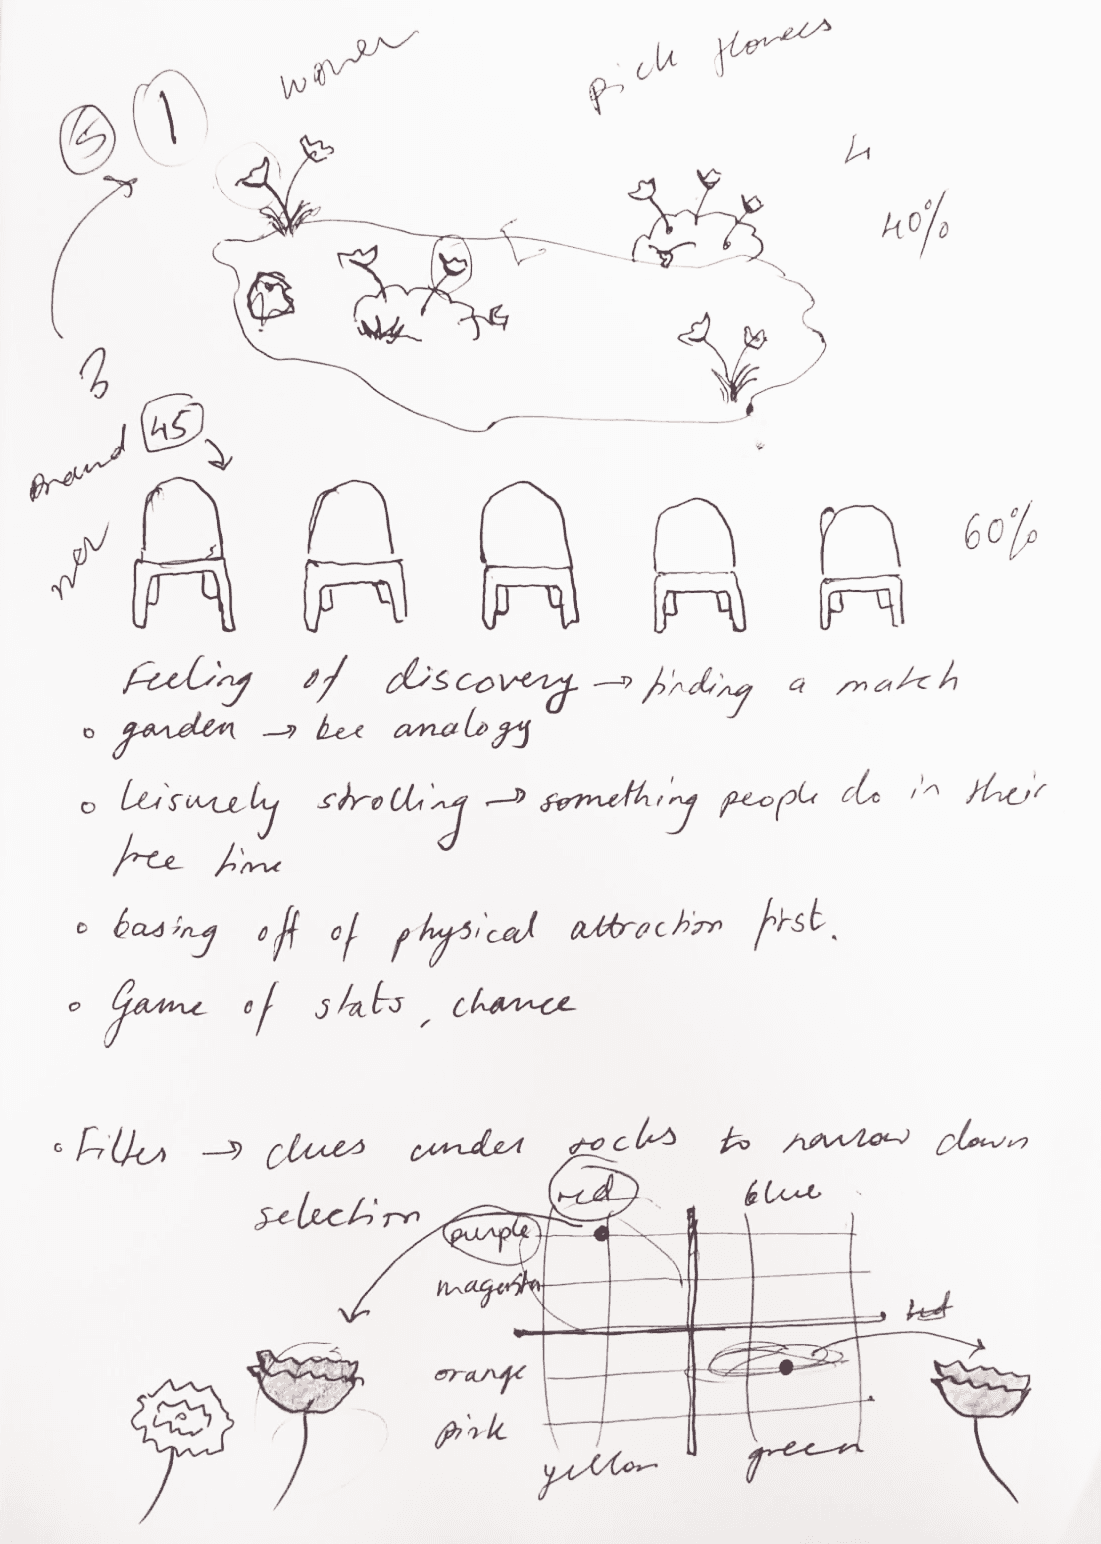 women
pick flowers
5 1
4
40%
3
around 45
men
60%
Feeling of discovery → finding a match
garden → bee analogy
leisurely strolling → something people do in their
free time
basing off of physical attraction first.
Game of stats, chance
Filter → clues under rocks to narrow down
selection
red blue
purple
magenta
orange
pink
yellow green